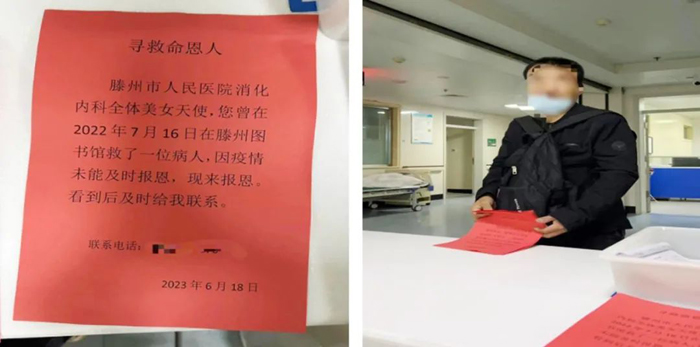 寻救命恩人
滕州市人民医院消化
内科全体美女天使，您曾在
2022年7月16日在滕州图
书馆救了一位病人，因疫情
未能及时报恩，现来报恩。
看到后及时给我联系。
联系电话：
2023年6月18日